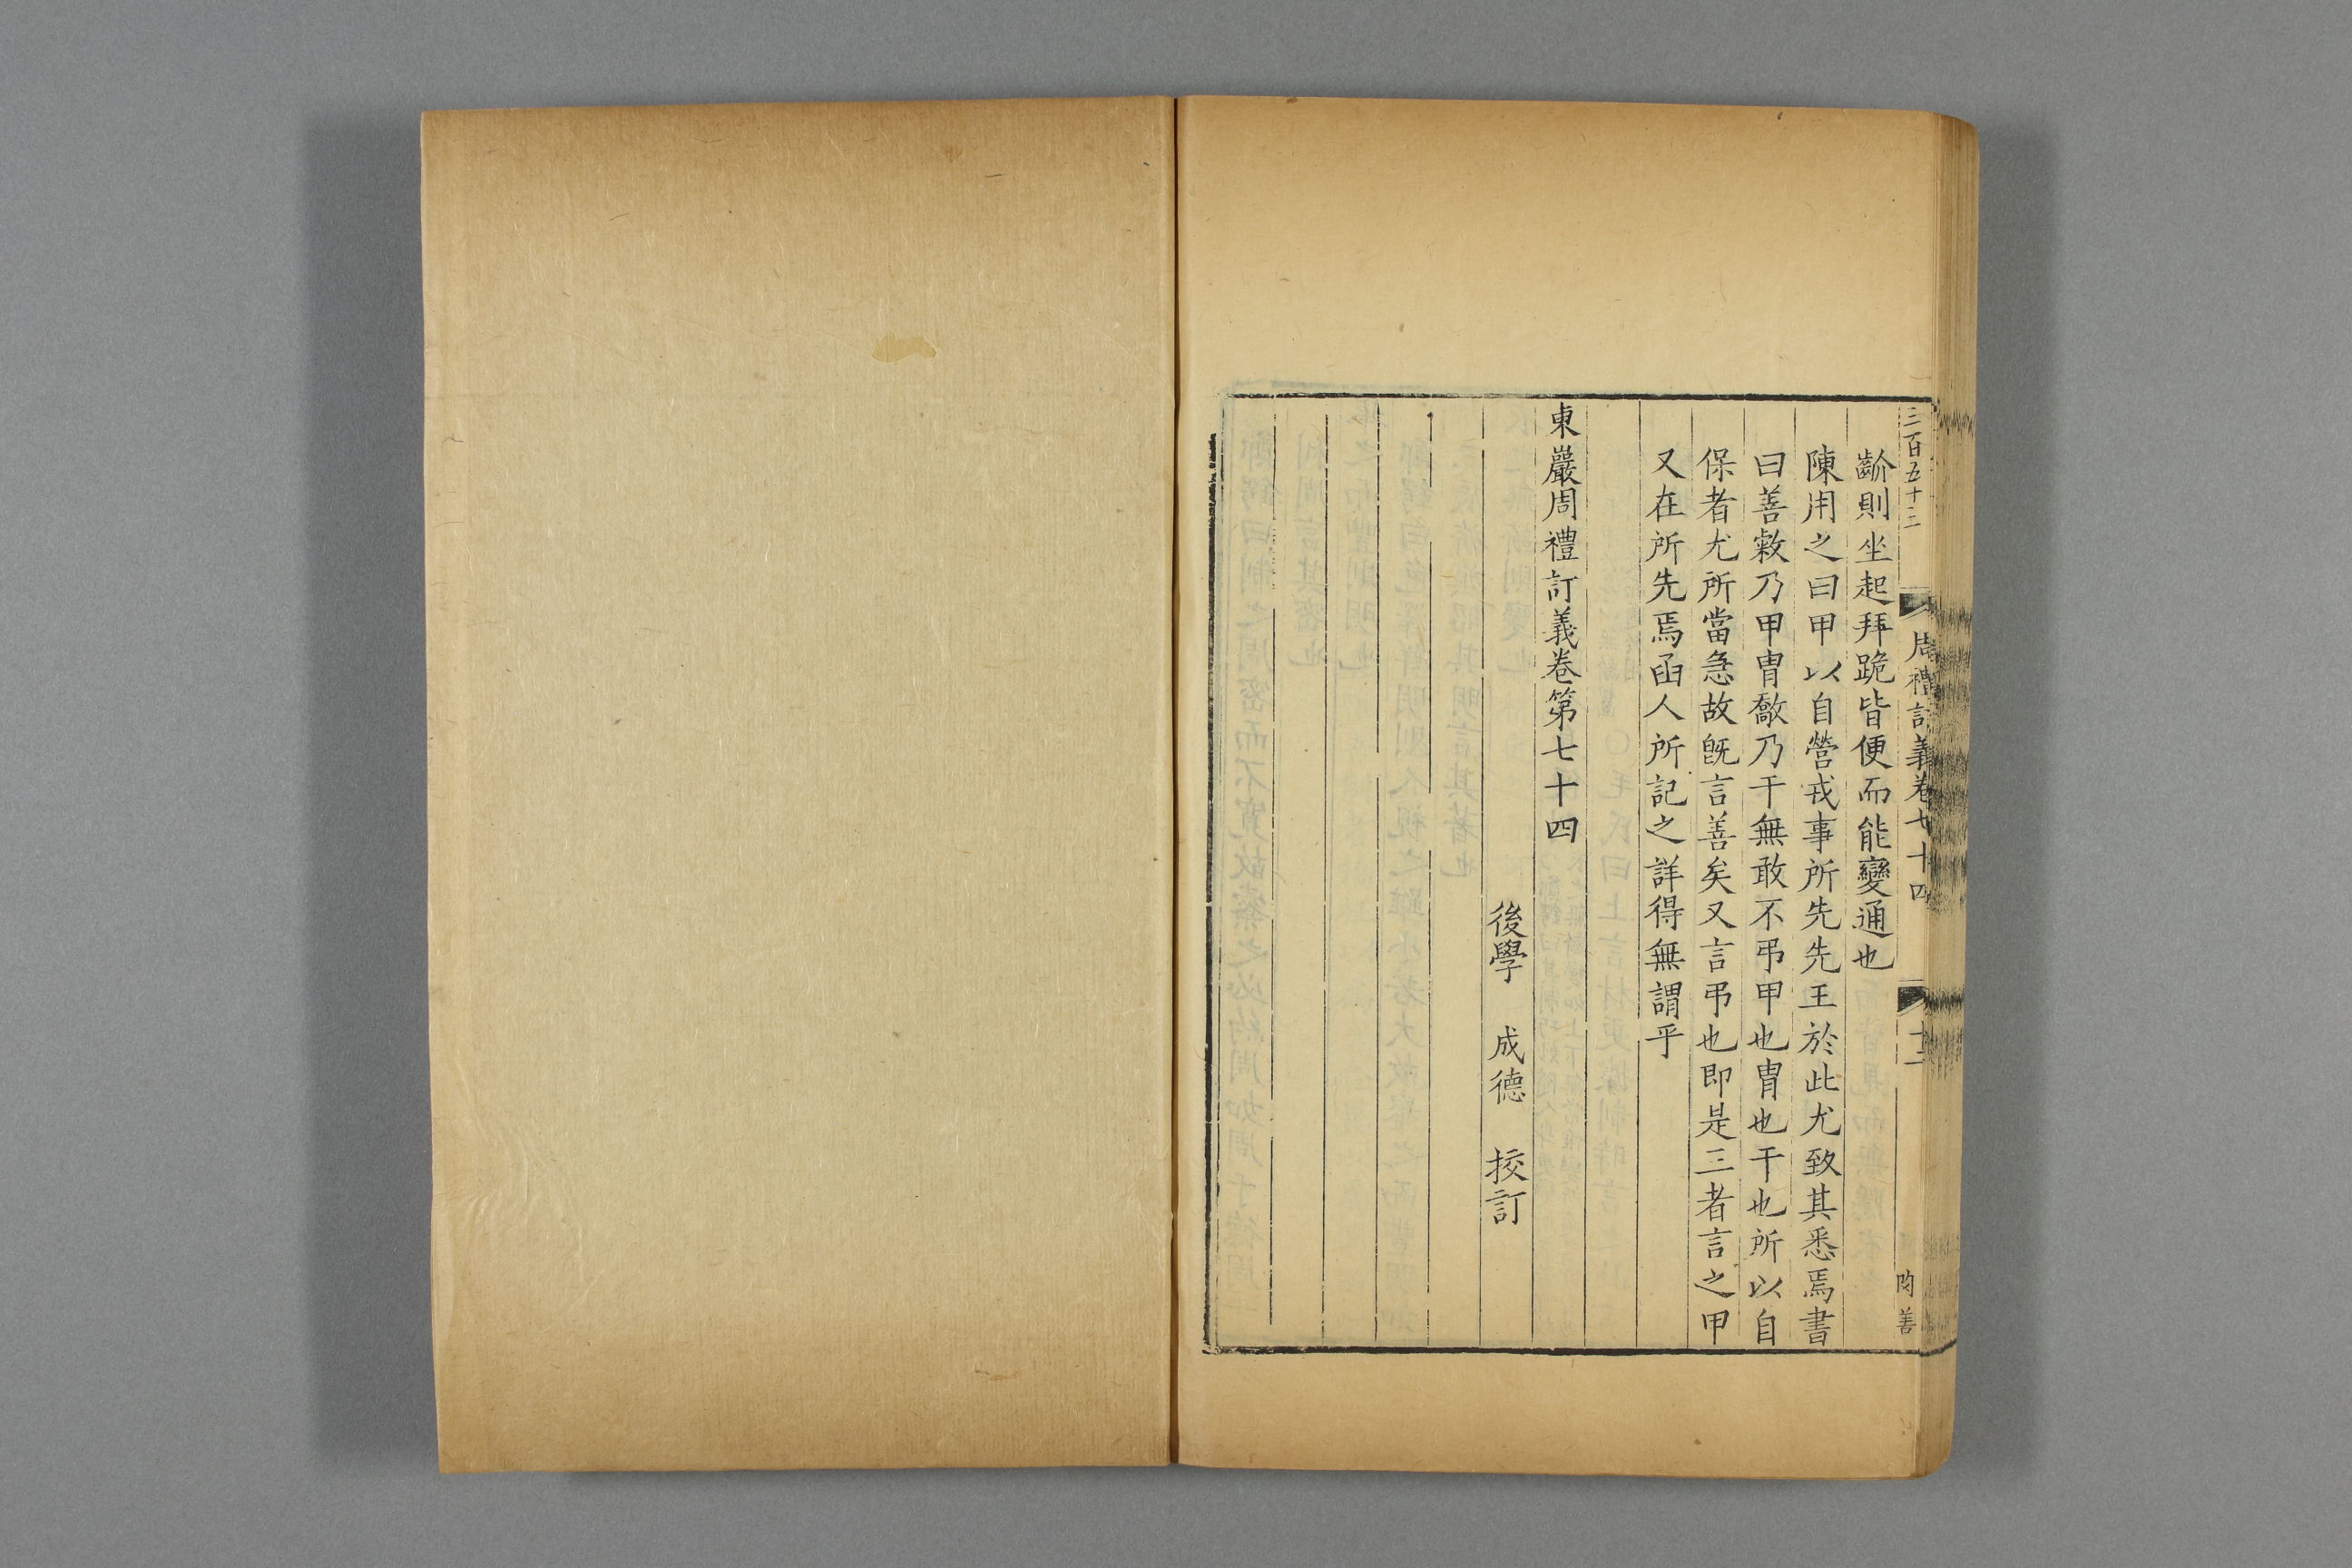 三百五十三
周禮訂義卷七十四
十二
齘則坐起拜跪皆便而能變通也
陳用之曰甲以自營戎事所先先王於此尤致其悉焉書
曰善敹乃甲冑敿乃干無敢不弔甲也冑也干也所以自
保者尤所當急故旣言善矣又言弔也即是三者言之甲
又在所先焉函人所記之詳得無謂乎
東巖周禮訂義卷第七十四
後學 成德 挍訂